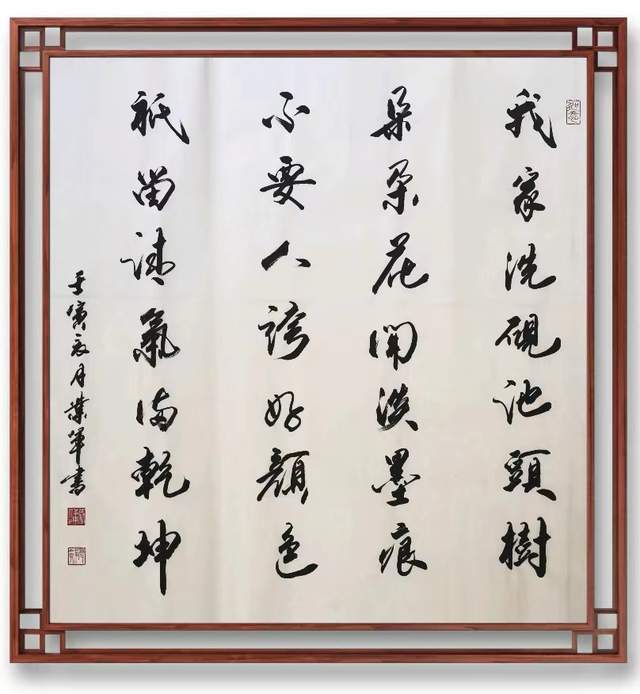 我家洗硯池頭樹
朵朵花開淡墨痕
不要人誇好顏色
祇留清氣滿乾坤
壬寅月軍書